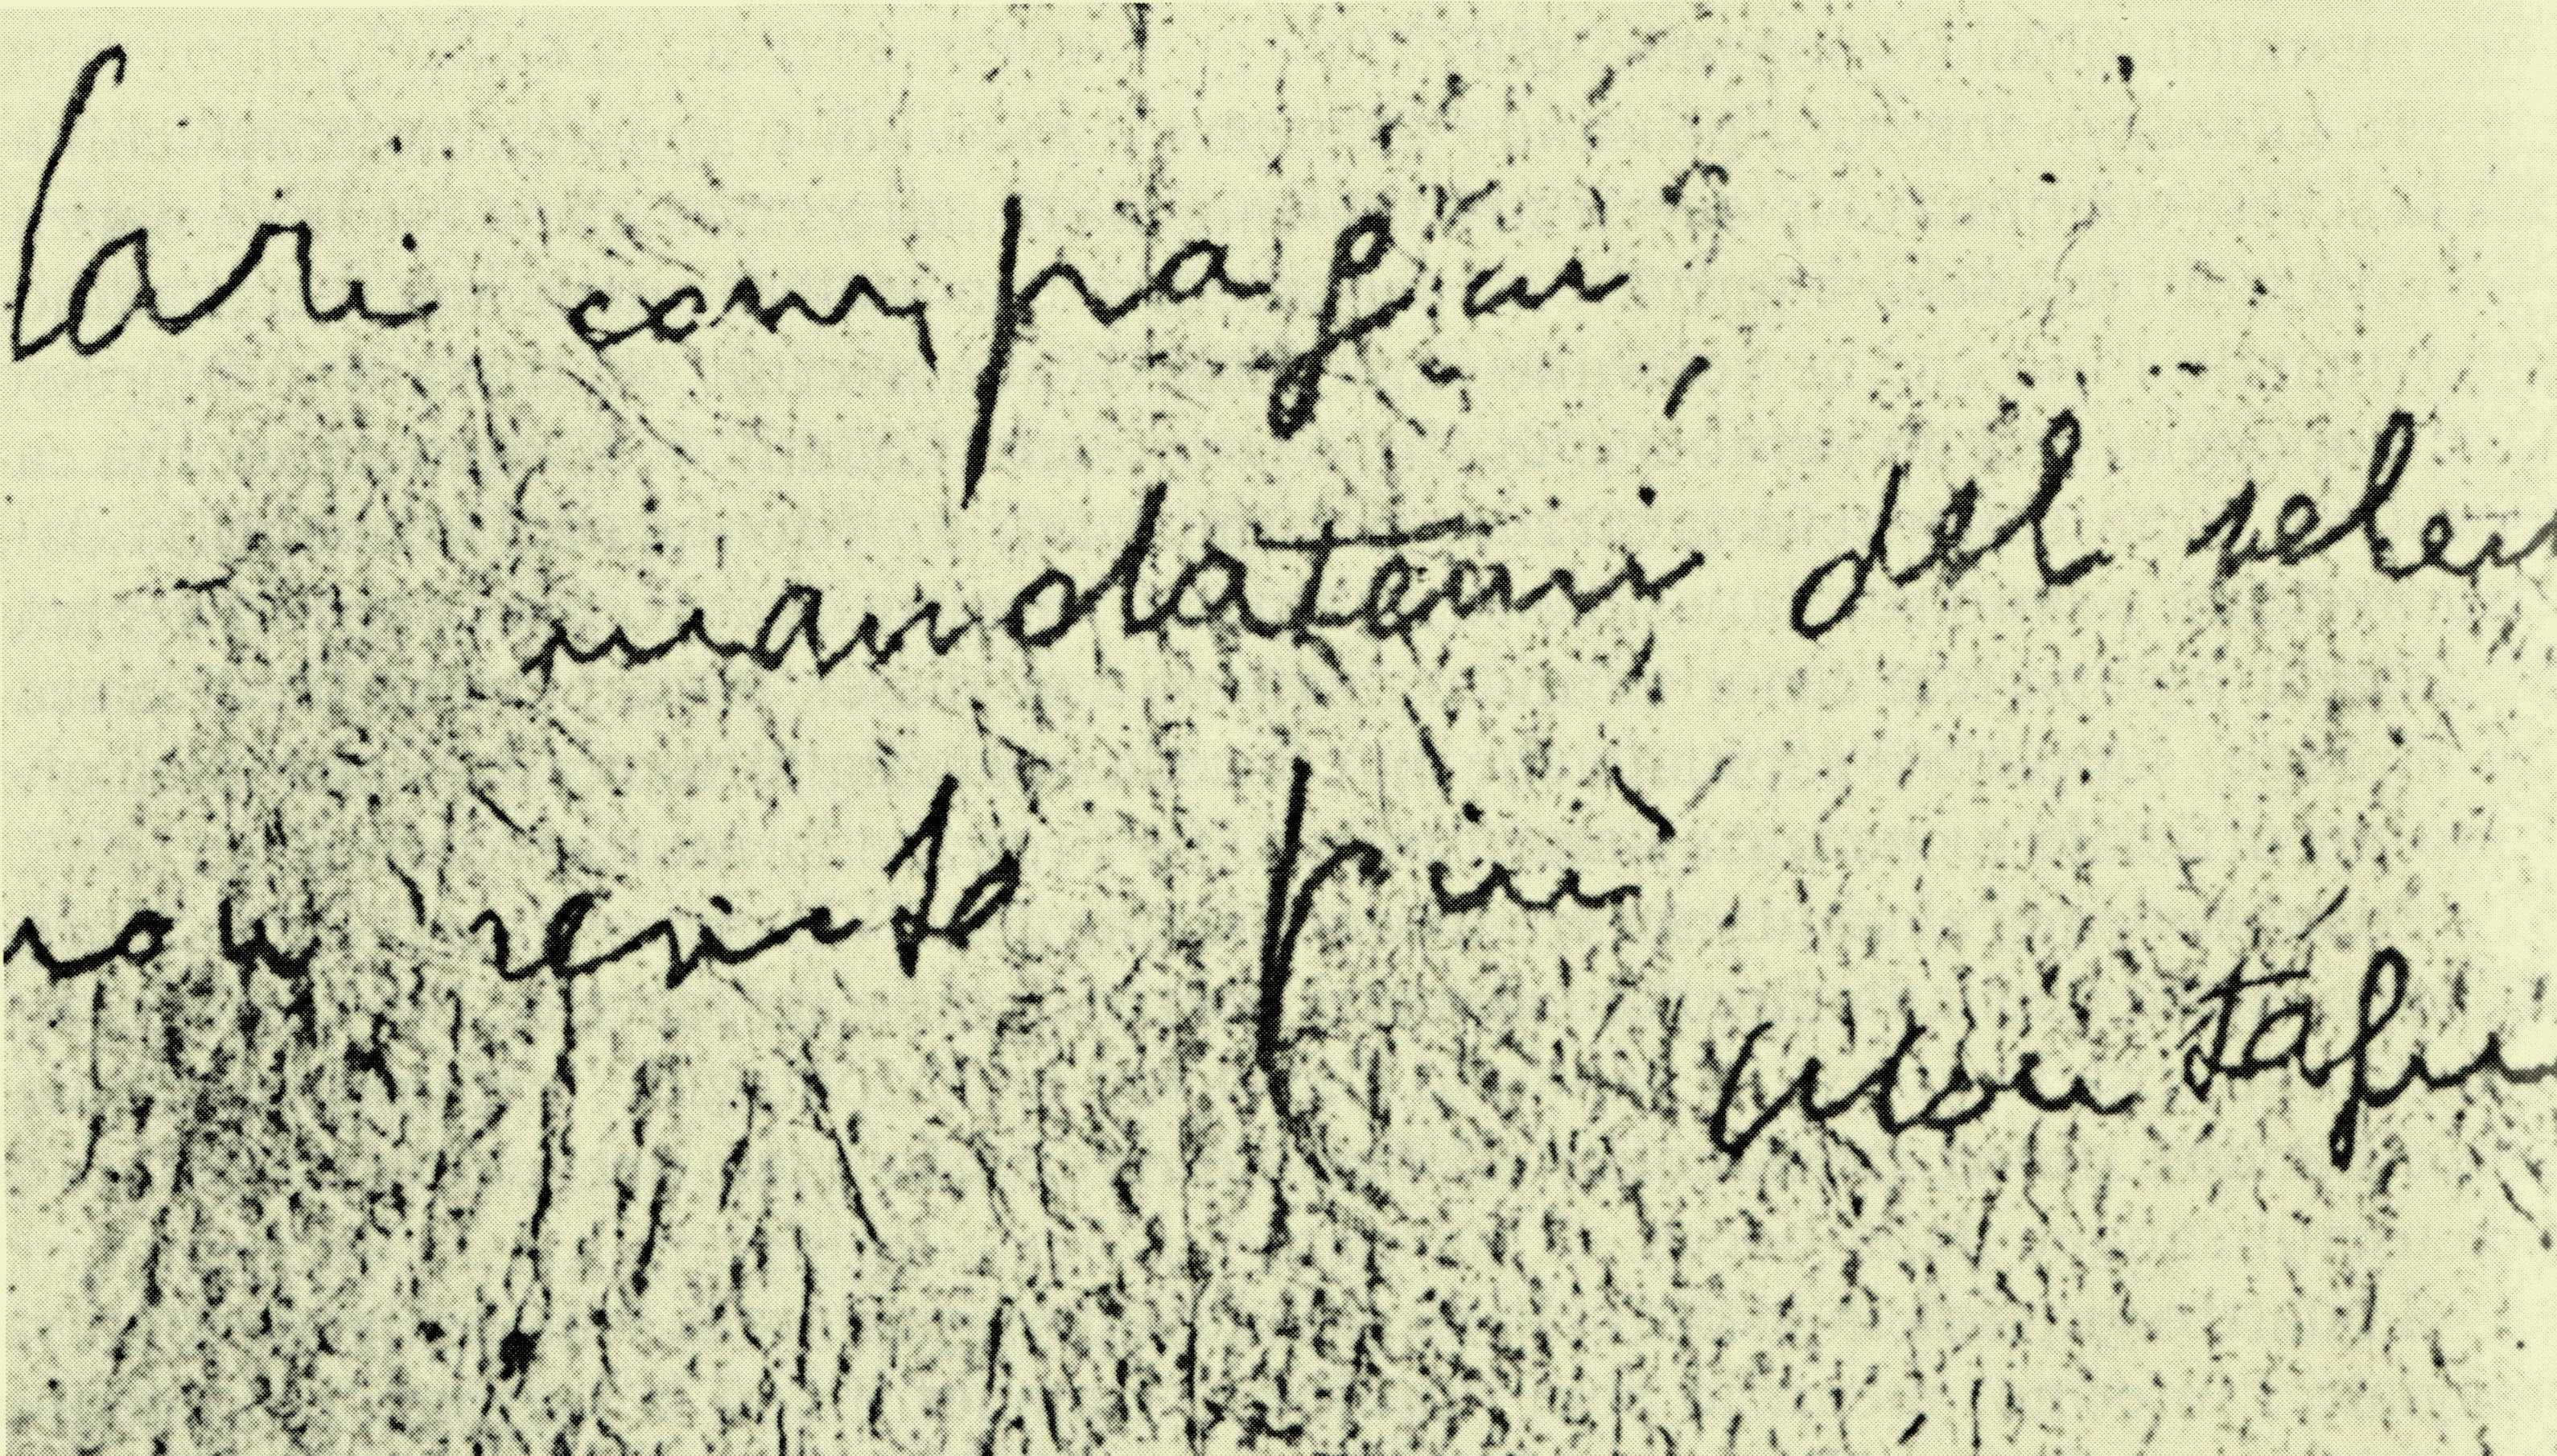 Cari compagni
mandatemi del velen
non resisto più
Gian